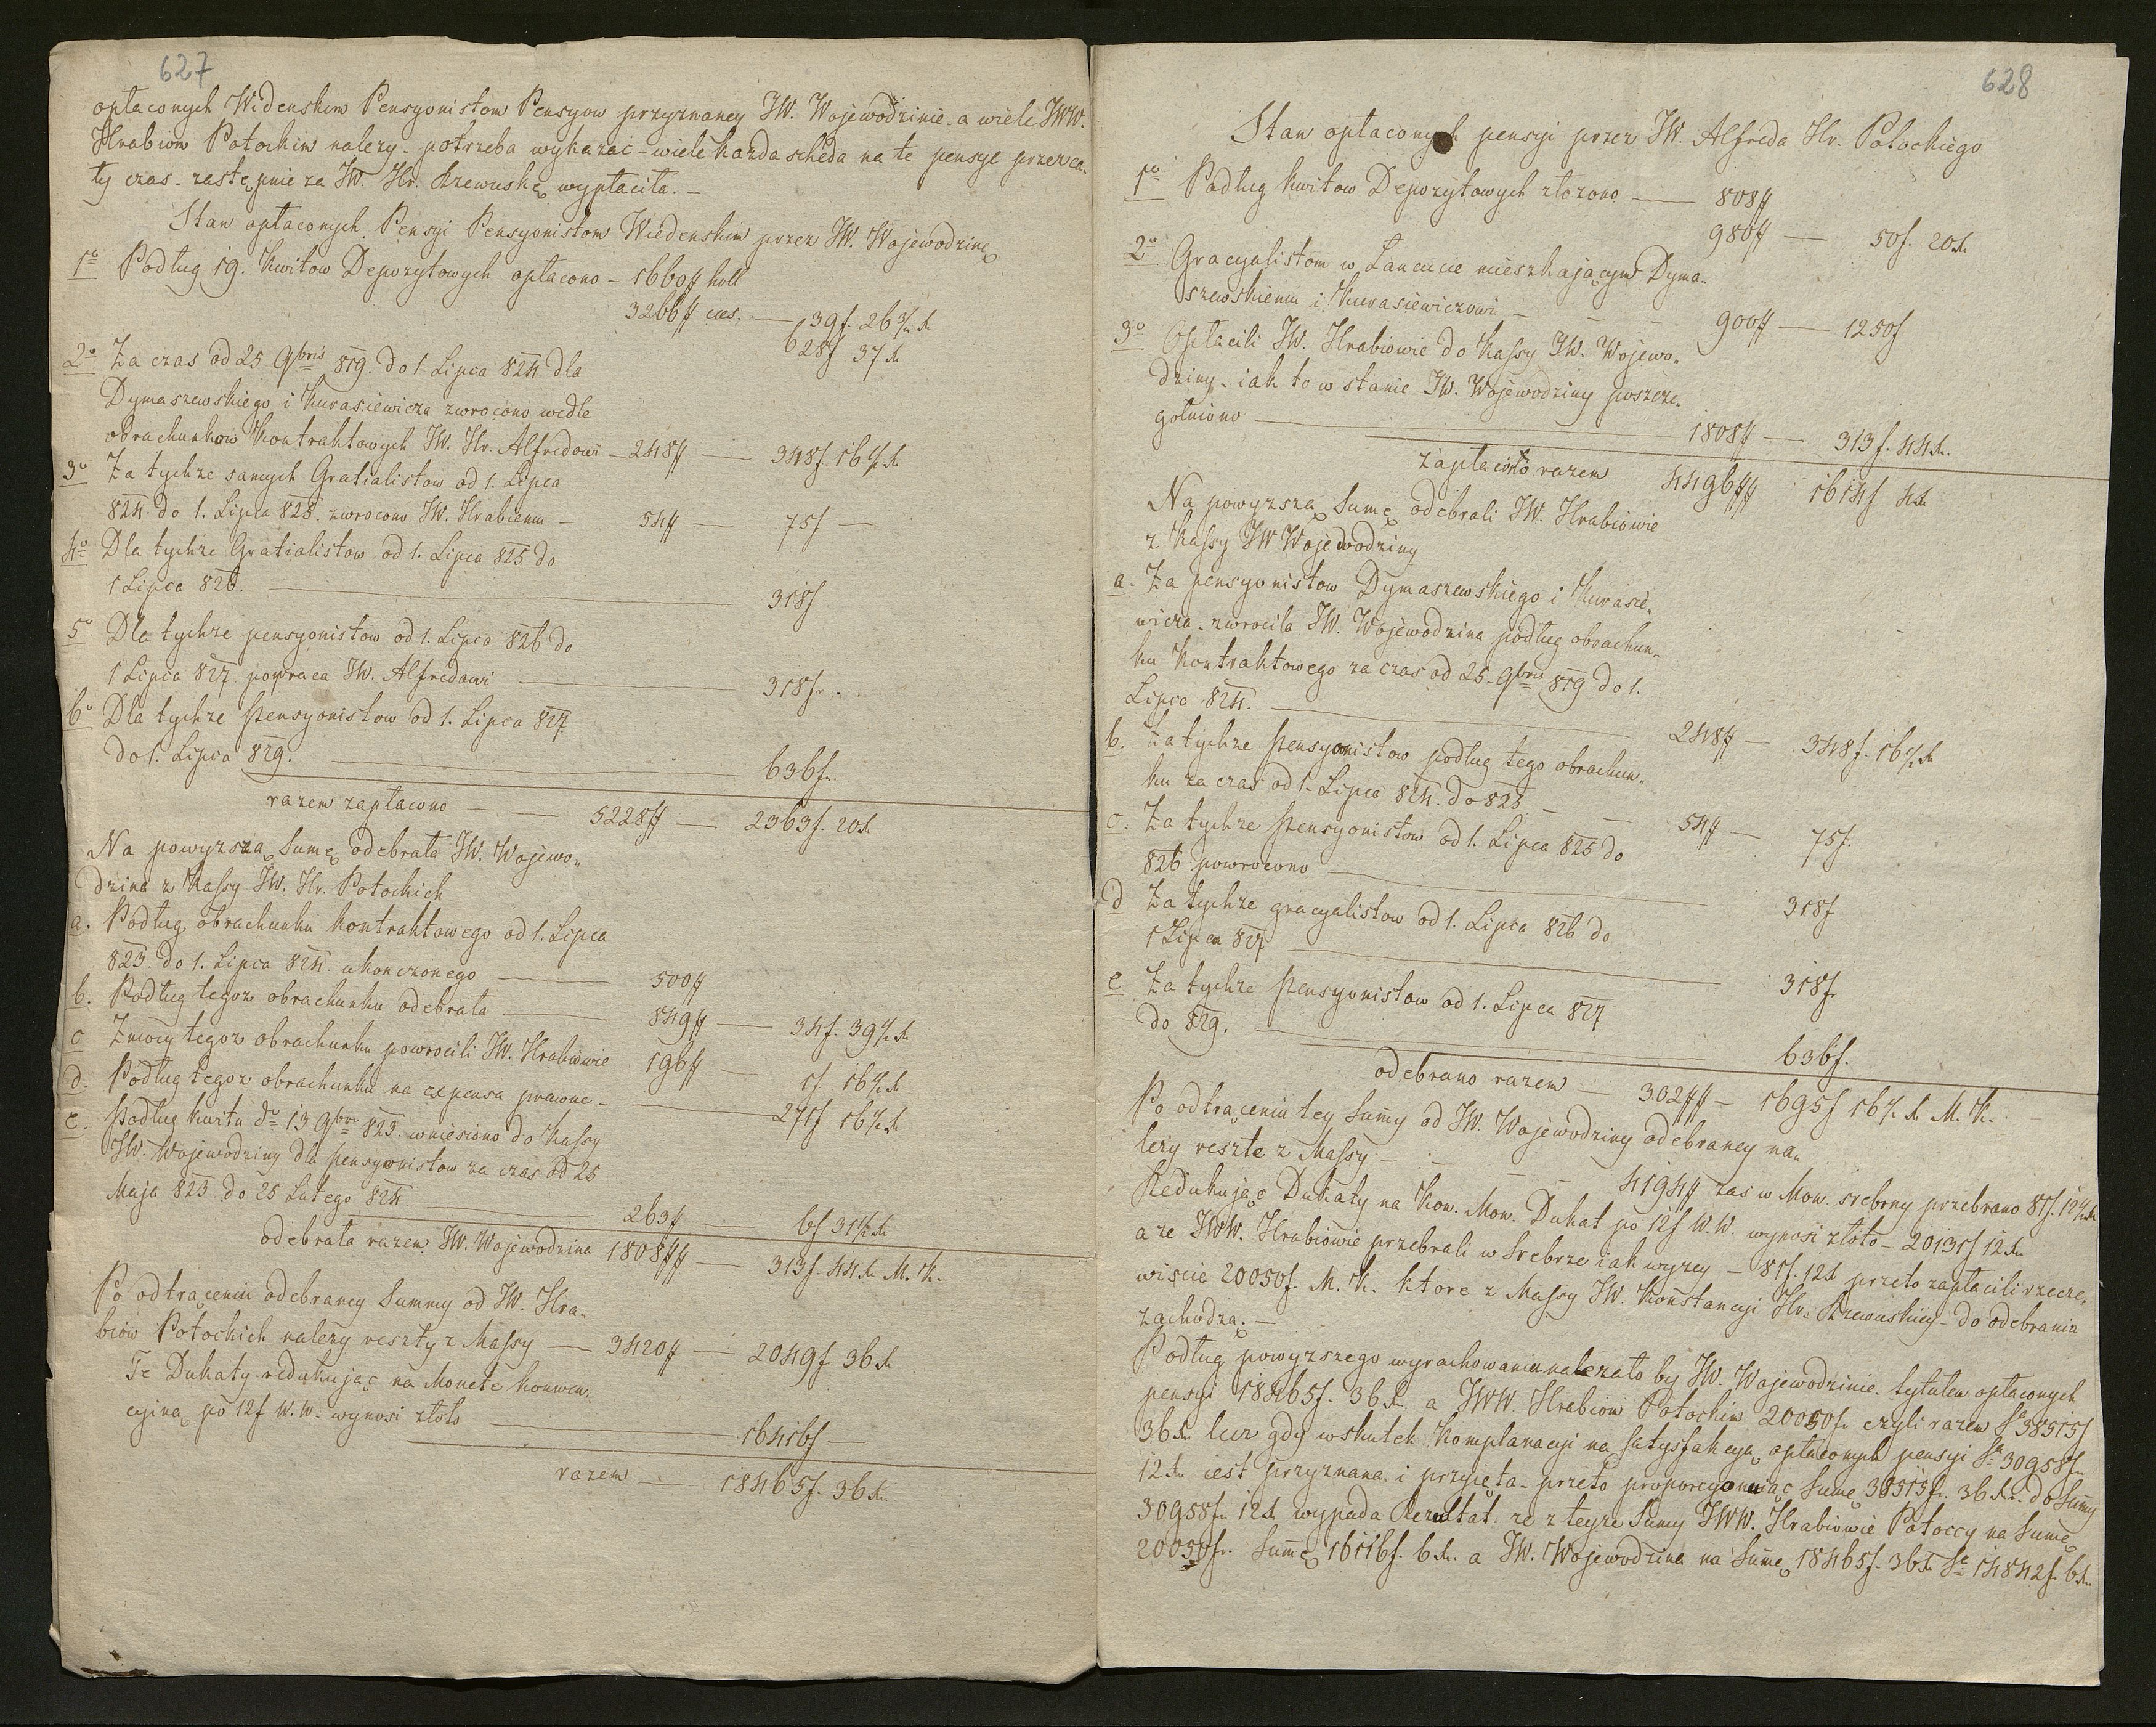 627
opłaconych Widenskim Pensyonistom Pensyow przyznaney JW. Wojewodzinie a wiele JWW.
Hrabiom Potockim nalezy - potrzeba wykazać - wiele kazda scheda na te pensye przez ca„
ły czas - zastępnie za JW. Hr. Rzewuskę wypłaciła. –
Stan opłaconych Pensyi Pensyonistom Wiedenskim przez JW. Wojewodzinę
1o Podług 19. Kwitow Depozytowych opłacono – 1660ff holl
3266ff ces. — 39f. 26
628f 37
2o Za czas od 25 9bris 819. do 1 Lipca 824 dla
Dymaszewskiego i Kurasiewicza zwrocono wedle
obrachunkow Kontraktowych JW. Hr. Alfredowi – 248ff — 348f 16
3o Za tychze samych Gratialistow od 1. Lipca
824. do 1. Lipca 825. zwrocono JW. Hrabiemu – 54ff — 75f —
4o Dla tychze Gratialistow od 1. Lipca 825 do
1 Lipca 826. — 318f
5o Dla tychze pensyonistow od 1. Lipca 826 do
1 Lipca 827 powraca JW. Alfredowi — 318f.
6o Dla tychze Pensyonistow od 1. Lipca 827.
do 1. Lipca 829. — 636f.
razem zapłacono — 5228ff — 2363f. 20
Na powyzszą Sumę odebrała JW. Wojewo„
dzina z Kassy JW. Hr. Potockich
a. Podług obrachunku Kontraktowego od 1. Lipca
823. do 1. Lipca 824. ukonczonego — 500ff
b. Podług tegoz obrachunku odebrała — 849ff — 34f. 39
c Z mocy tegoz obrachunku powrocili JW. Hrabiowie 196ff — 1f 16
d. Podług tegoz obrachunku na expensa prawne – — 271f 16
e. Podług kwitu do 13 9bris 823. wniesiono do Kassy
JW. Wojewodziny dla pensyonistow za czas od 25
Maja 823 do 25 Lutego 824 — 263f — 6f 31
odebrała razem JW. Wojewodzina 1808ff — 313f. 44 M. K.
Po odtrąceniu odebraney Summy od JW. Hra„
biow Potockich nalezy reszty z Massy — 3420ff — 2049f 36
Te Dukaty redukując na Monetę konwen„
cyiną po 12f W.W. wynosi złoto — 16416f —
razem — 18465f. 36
628
Stan opłaconych pensyi przez JW. Alfreda Hr. Potockiego
1o Podług Kwitow Depozytowych złozono — 808ff
980ff — 50f. 20
2o Gracyalistom w Łancucie mieszkającym Dyma„
szewskiemu i Kurasiewiczowi – 900ff — 1250f
3o Opłacili JW. Hrabiowie do Kassy JW. Wojewo„
dziny - iak to w stanie JW. Wojewodziny poszcze„
golniono — 1808ff — 313f. 44
zapłacono razem 4496ff 1614f 4
Na powyzszą Sumę odebrali JW. Hrabiowie
z Kassy JW Wojewodziny
a. Za pensyonistow Dymaszewskiego i Kurasie„
wicza - zwrociła JW. Wojewodzina podług obrachun„
ku Kontraktowego za czas od 25. 9bris 819 do 1.
Lipca 824. — 248ff — 348f. 16
b. Za tychze Pensyonistow podług tego obrachun„
ku za czas od 1. Lipca 824. do 825 – 54ff — 75f.
c. Za tychze Pensyonistow od 1. Lipca 825 do
826 powrocono — 318f
d Za tychze gracyalistow od 1. Lipca 826 do
1 Lipca 827 — 318f
e Za tychze Pensyonistow od 1. Lipca 827
do 829. — 636f.
odebrano razem — 302ff – 1695f 16 M. K. –
Po odtrąceniu tey Summy od JW. Wojewodziny odebraney na„
lezy resztę z Massy – 4194ff zas w Mon. srebrny przebrano 81f. 12
Redukując Dukaty na Kon. Mon. Dukat po 12f W.W. wynosi złoto – 20131f 12
a ze JWW. Hrabiowie przebrali w Srebrze iak wyzey – 81f. 12 przeto zapłacili rzecze„
wiscie 20050f. M. K. ktore z Massy JW. Konstancyi Hr. Rzewuskiey - do odebrania
zachodzą. –
Podług powyzszego wyrachowania nalezało by JW. Wojewodzinie - tytułem opłaconych
pensyi 18465f. 36 a JWW. Hrabiom Potockim 20050f. czyli razem Sa 38515f
36 lecz gdy w skutek Komplanacyi na satysfakcyą opłaconych pensyi Sa 30958f.
12 iest przyznana i przyięta - przeto proporcyonuiąc Sumę 38515f. 36 do Summy
30958f. 12 wypada Rezultat. ze z teyze Sumy JWW. Hrabiowie Potoccy na Sumę
20050f. Summę 16116f. 6 a JW. Wojewodzina na Sumę 18465f. 36 Sę 14842f. 6